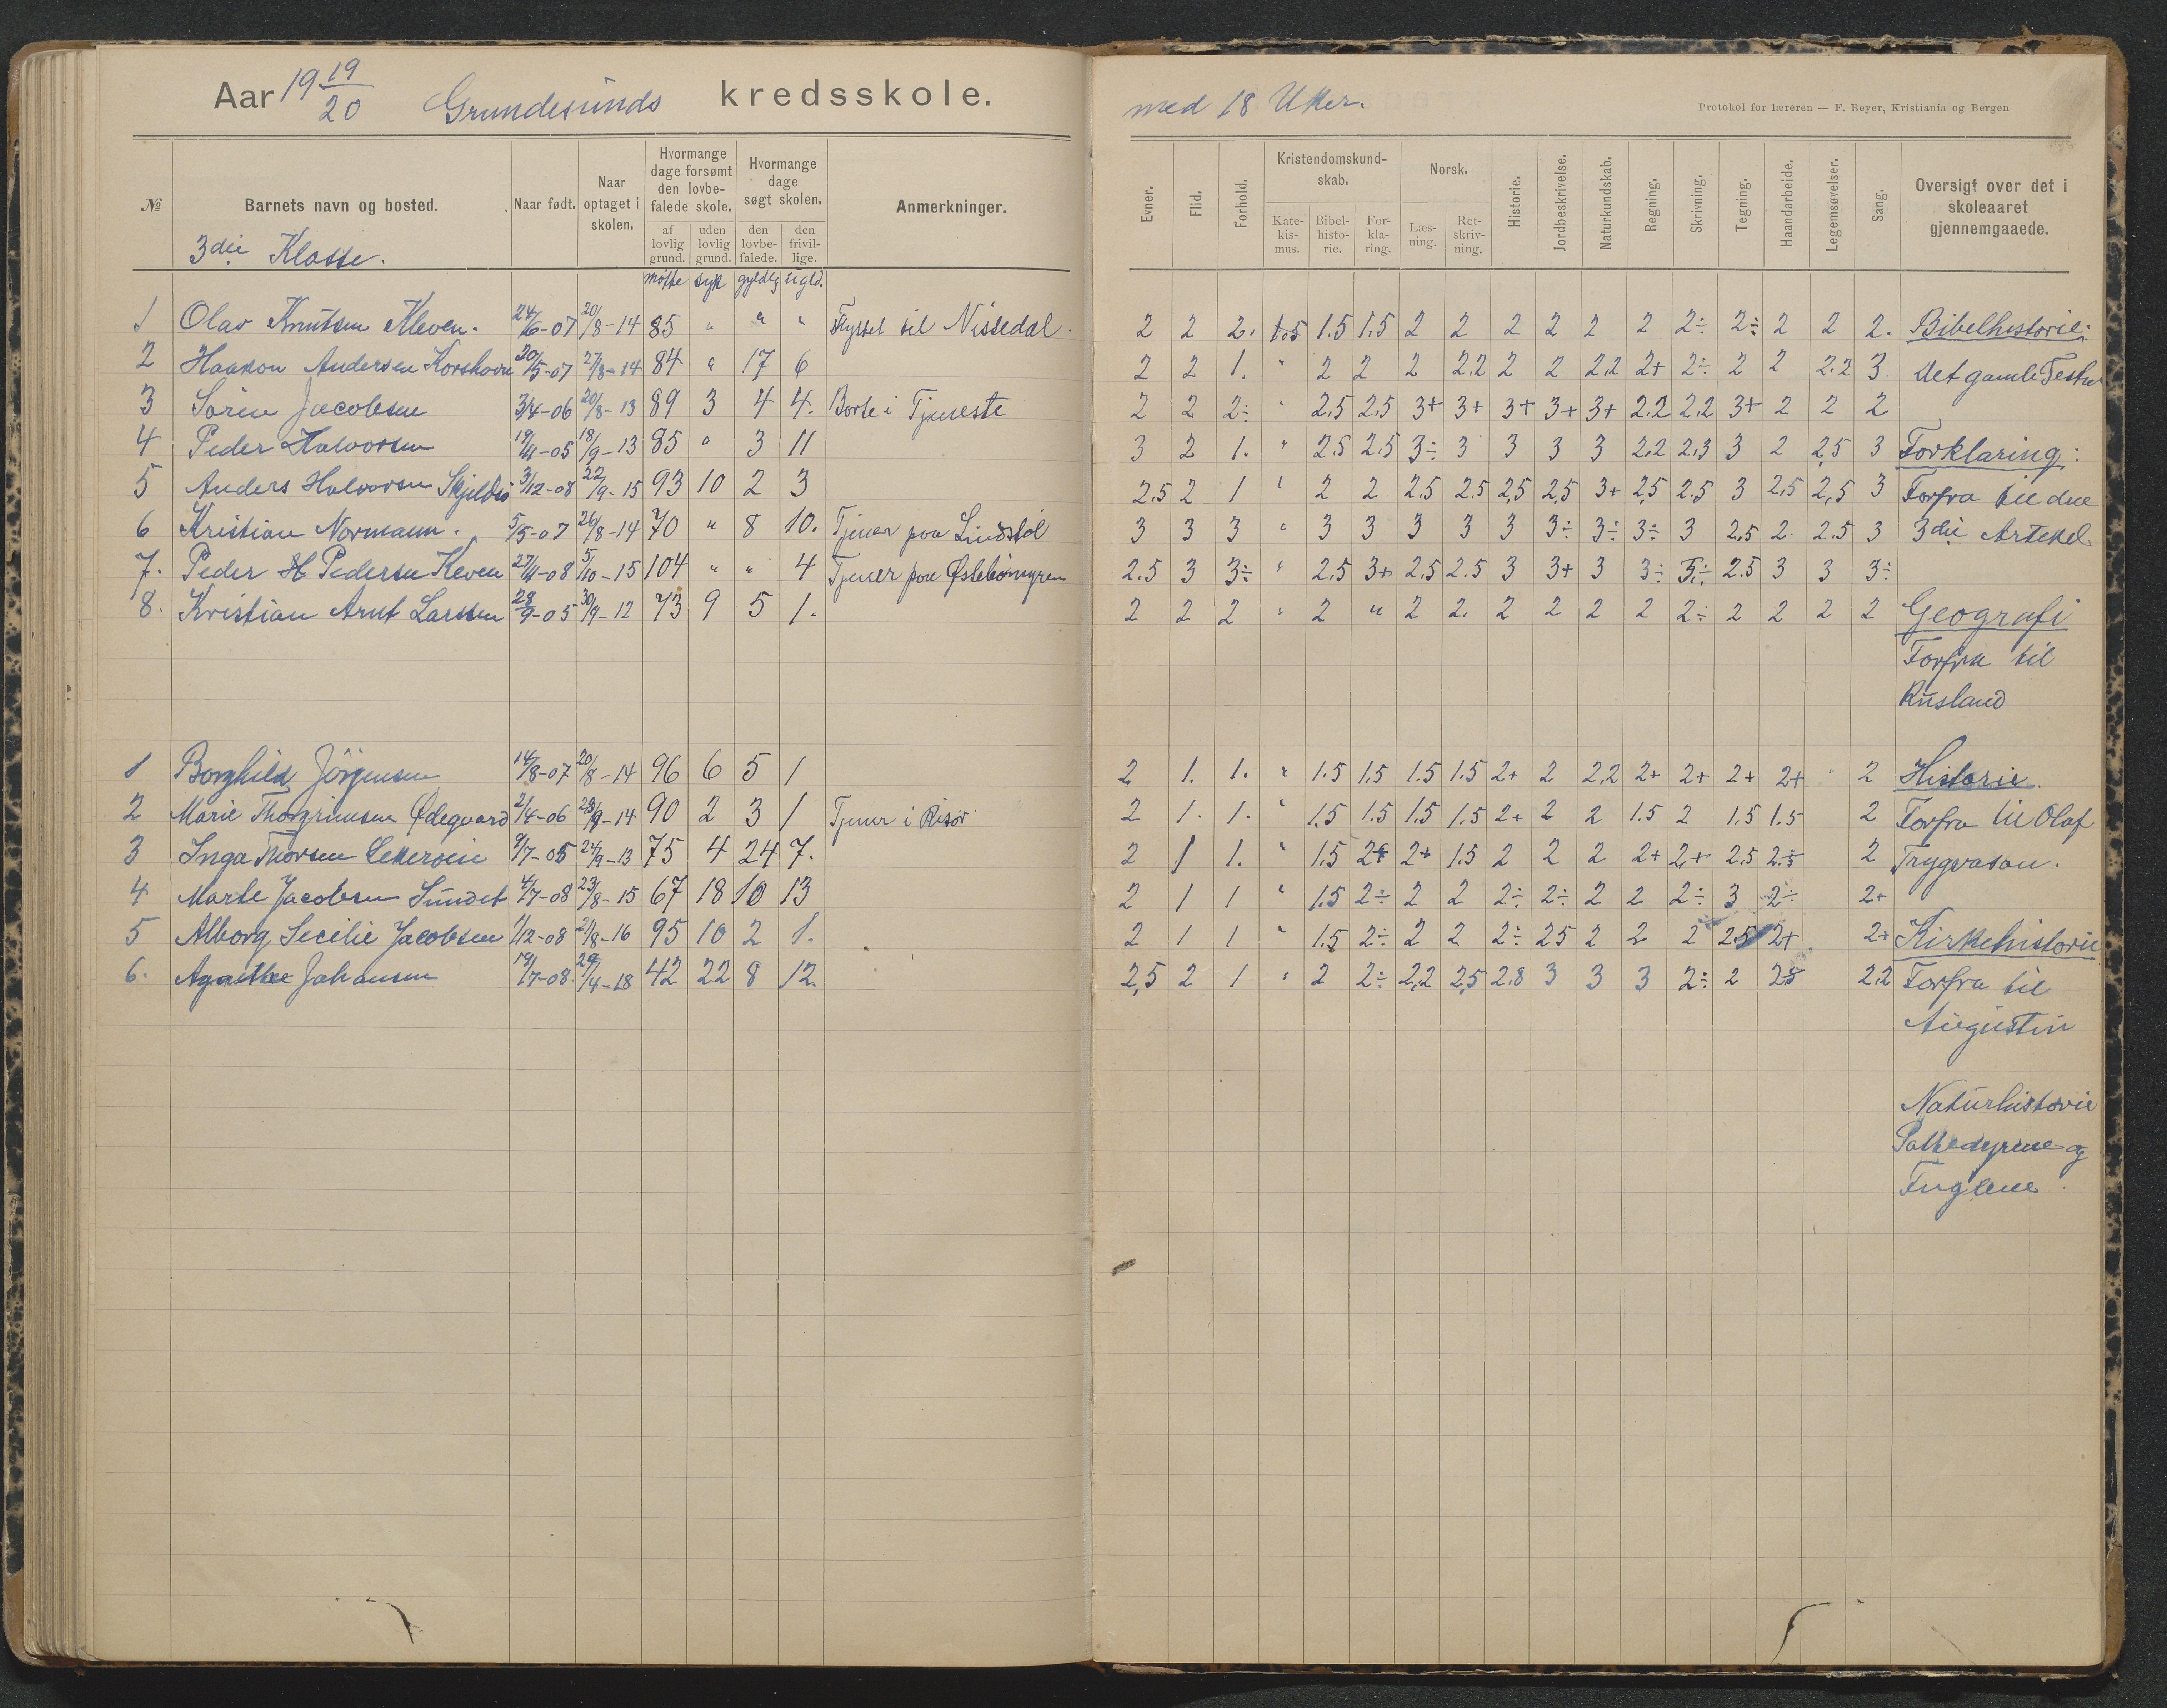 Aar 19 19/20 Grundesunds kredsskole.
№ Barnets navn og bosted. Naar født. Naar optaget i skolen. Hvormange dage forsømt den lovbefalede skole. af lovlig grund. uden lovlig grund. Hvormange dage søgt skolen. den lovbefalede. den frivillige. Anmerkninger.
3die Klasse.
møtte syk gyldig ugld.
1 Olav Knutsen Kleven. 24/6-07 20/8-14 85 " " " Flyttet til Nissedal.
2 Haakon Andersen Korshavn 20/5-07 27/8-14 84 " 17 6
3 Søren Jacobsen 3/4-06 20/8-13 89 3 4 4. Borte i Tjeneste
4 Peder Halvorsen 19/11-05 18/9-13 85 " 3 11
5 Anders Halvorsen Skjeldsø 3/12-08 22/9-15 93 10 2 3
6 Kristian Normann. 5/5-07 26/8-14 70 " 8 10. Tjener paa Lindstøl
7. Peder H Pedersen Keven 27/11-08 5/10-15 104 " " 4 Tjener paa Øslebømyren
8. Kristian Arnt Larssen 28/9-05 30/9-12 73 9 5 1.
1 Borghild Jörgensen 14/8-07 20/8-14 96 6 5 1
2 Marie Thorgrimsen Ødegaard 2/4-06 23/9-14 90 2 3 1 Tjener i Risør
3 Inga Thorsen 9/7-05 24/9-13 75 4 24 7.
4 Marte Jacobsen Sundet 4/7-08 23/8-15 67 18 10 13
5 Alborg Secilie Jacobsen 1/12-08 21/8-16 95 10 2 1.
6. Agathe Johansen 19/7-08. 29/4-18 42 22 8 12.
med 18 Uker.
Protokol for læreren — F. Beyer, Kristiania og Bergen
Evner. Flid. Forhold. Kristendomskundskab. Katekismus. Bibelhistorie. Forklaring. Norsk. Læsning. Retskrivning. Historie. Jordbeskrivelse. Naturkundskab. Regning. Skrivning. Tegning. Haandarbeide. Legemsøvelser. Sang. Oversigt over det i skoleaaret gjennemgaaede.
2 2 2. 1.5 1.5 1.5 2 2 2 2 2 2 2÷ 2÷ 2 2 2. Bibelhistorie:
2 2 1. " 2 2 2 2.2 2 2 2.2 2+ 2÷ 2 2 2.2 3. Det gamle Testm
2 2 2÷ " 2.5 2.5 3+ 3+ 3+ 3+ 3+ 2.2 2.2 3+ 2 2 2
3 2 1. " 2.5 2.5 3÷ 3 3 3 3 2.2 2.3 3 2 2.5 3 Forklaring:
2.5 2 1 " 2 2 2.5 2.5 2.5 2.5 3+ 2.5 2.5 3 2.5 2.5 3 Forfra til den
3 3 3 " 3 3 3 3 3 3÷ 3÷ 3÷ 3 2.5 2. 2.5 3 3die Artekel
2.5 3 3÷ " 2.5 3+ 2.5 2.5 3 3+ 3 3÷ 3÷ 2.5 3 3 3÷
2 2 2 " 2 " 2 2. 2 2 2 2 2÷ 2 2 2 2 Geografi
Forfra til
Rusland
2 1. 1. " 1.5 1.5 1.5 1.5 2+ 2 2.2 2+ 2+ 2+ 2+ " 2 Historie.
2 1. 1. " 1.5 1.5 1.5 1.5 2+ 2 2 1.5 2 1.5 1.5 2 Forfra til Olaf
2 1 1. " 1.5 2+ 2+ 1.5 2 2 2 2+ 2+ 2.5 2.5 2 Trygvason.
2 1 1 " 1.5 2÷ 2 2 2÷ 2÷ 2 2 2÷ 3 2÷ 2+
2 1 1 " 1.5 2÷ 2 2 2÷ 2.5 2 2 2 2.5 2+ 2+ Kirkehistorie
2,5 2 1 " 2 2÷ 2,2 2,5 2.8 3 3 3 2÷ 2 2.5 2.2 Forfra til
Augustin
Naturhistorie
Pattedyrene og
Fuglene.